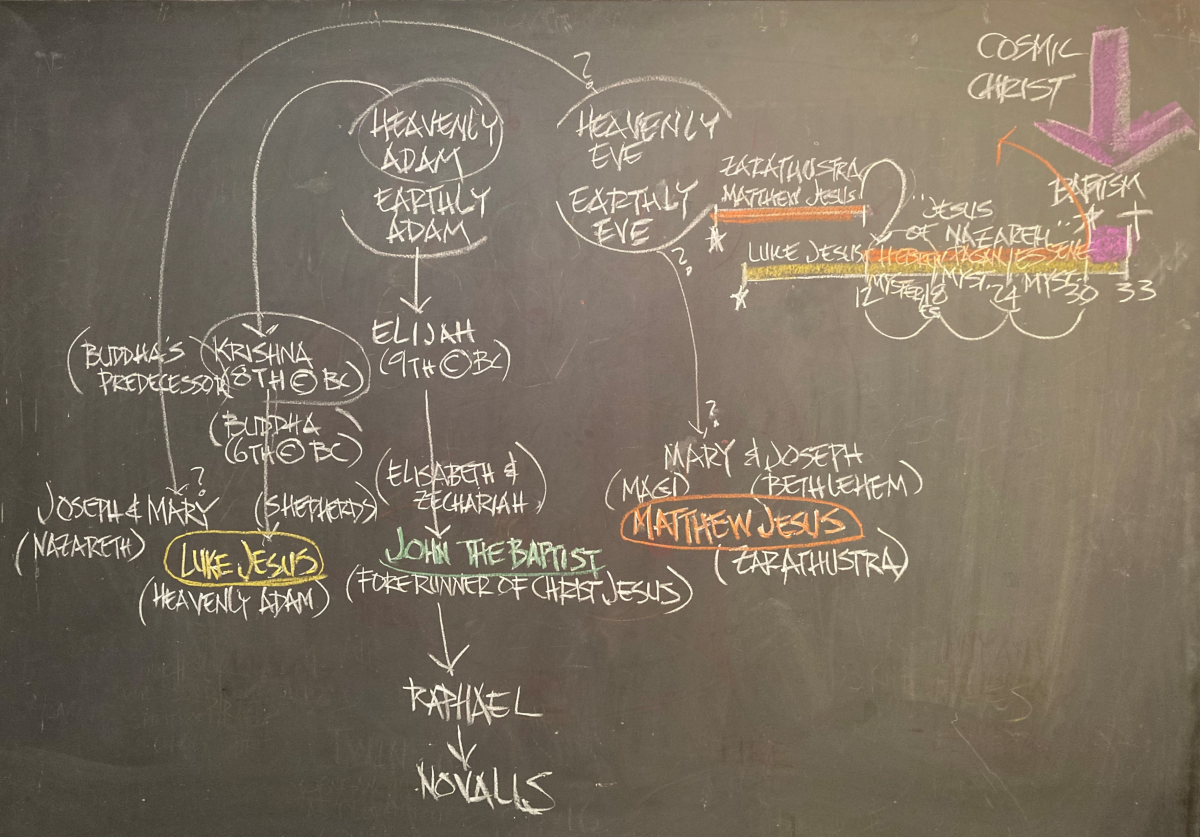 COSMIC
CHRIST
?
HEAVENLY
ADAM
EARTHLY
ADAM
HEAVENLY
EVE
EARTHLY
EVE
?
ZARATHUSTRA
MATTHEW JESUS
BAPTISM
"JESUS
OF NAZARETH"
LUKE JESUS
HEBREW PAGAN ESSENE
MYSTERIES MYST. MYST.
12 18 24 30 33
ELIJAH
(9TH © BC)
(BUDDHA'S
PREDECESSOR)
KRISHNA
(8TH © BC)
(BUDDHA
(6TH © BC)
?
MARY & JOSEPH
(MAGI) (BETHLEHEM)
MATTHEW JESUS
(ZARATHUSTRA)
(ELISABETH &
ZECHARIAH)
?
JOSEPH & MARY
(NAZARETH)
(SHEPHERDS)
LUKE JESUS
(HEAVENLY ADAM)
JOHN THE BAPTIST
(FORERUNNER OF CHRIST JESUS)
RAPHAEL
NOVALIS